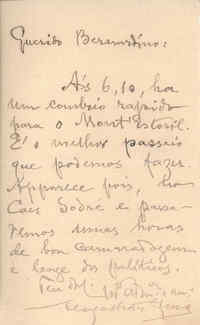 Querido Bernardino:
Ás 6,10, ha
um comboio rapido
para o Mont'Estoril.
É o melhor passeio
que podemos fazer.
Apparece pois, no
Caes Sodré e passa-
remos umas horas
de boa camaradagem
e longe dos politicos.
Teu